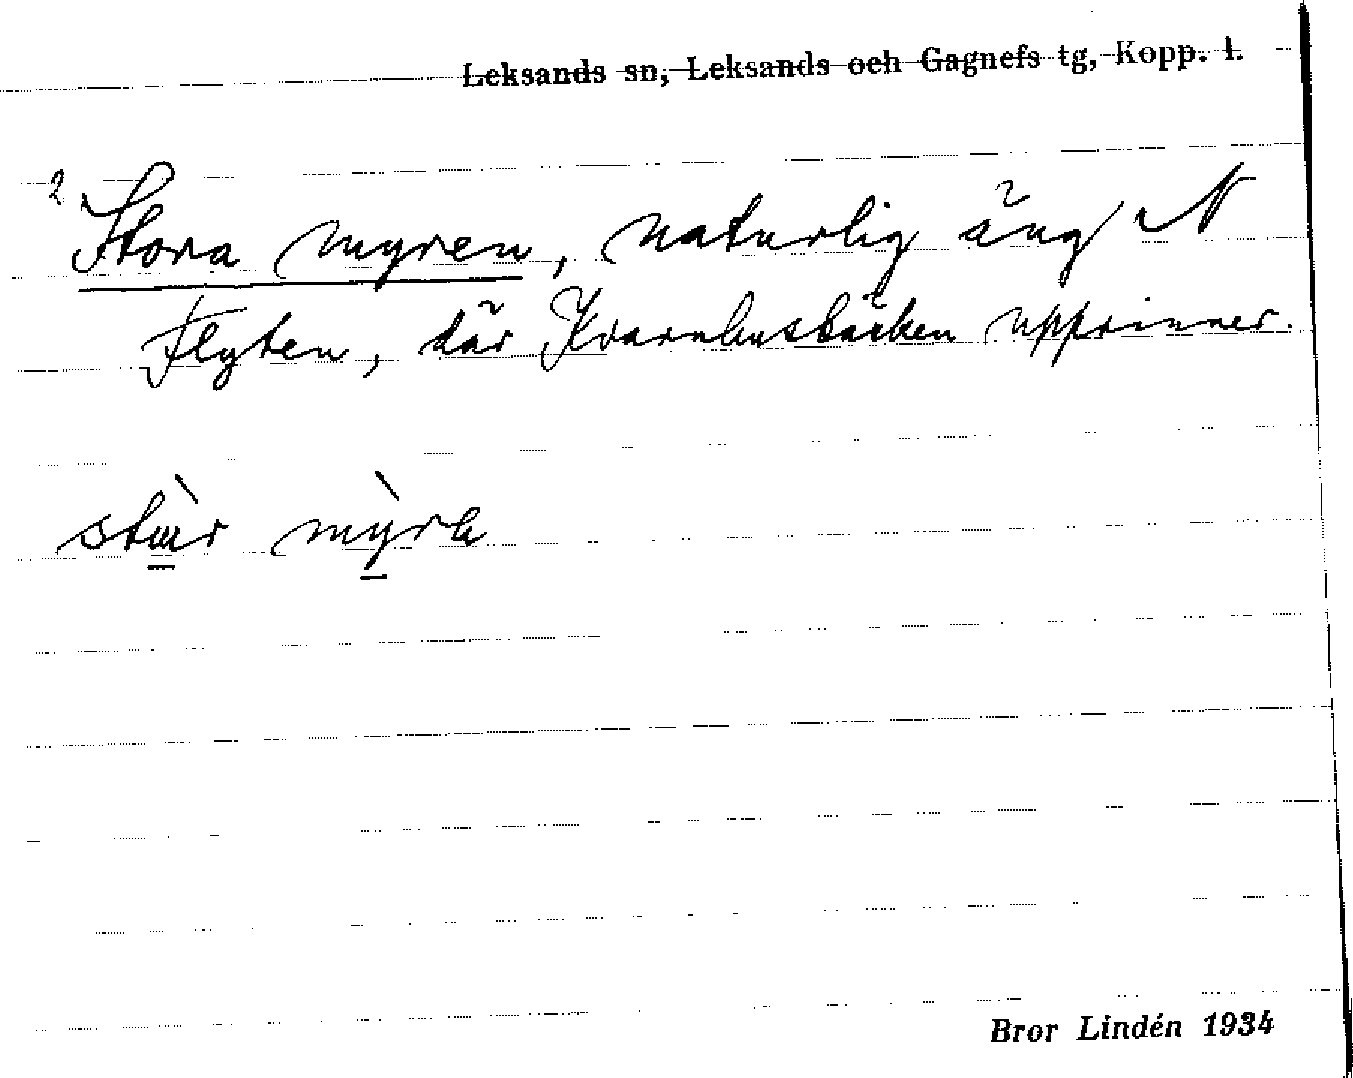 Leksands sn, Leksands och Gagnefs tg, Kopp. l.
2 Stora myren, naturlig äng N
Flyten, där Kvarnhusbäcken upprinner.
Bror Lindén 1934